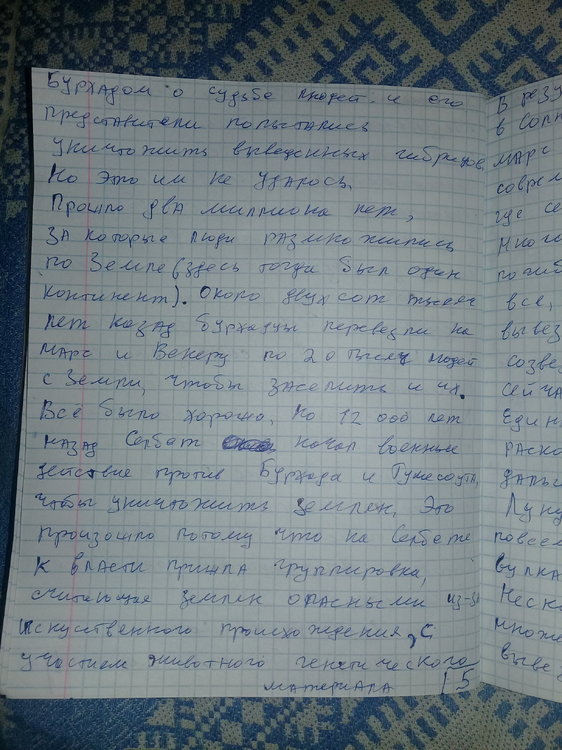 Бурхадом о судьбе людей. и его
представители попытались
уничтожить выведенных гибридов,
Но это им не удалось.
Прошло два миллиона лет,
за которые люди размножились
по Земле (здесь тогда был один
континент). Около двухсот тысяч
лет назад бурхадцы перевезли на
марс и Венеру по 20 тысяч людей
с Земли, чтобы заселить и их.
Всё было хорошо, но 12 000 лет
назад Сербат начал военные
действие против Бурхада и
чтобы уничтожить землян, Это
произошло потому что на Сербате
к власти пришла группировка,
считающая землян опасными из-за
искуственного происхождения, с
участием животного генетического
материала 15
В резу
в Солн
марс
соврем
где се
много
погиб
все,
вывез
созве
сейча
Един
раско
дальн
Луну
повсем
вулка
Неск
множе
выве